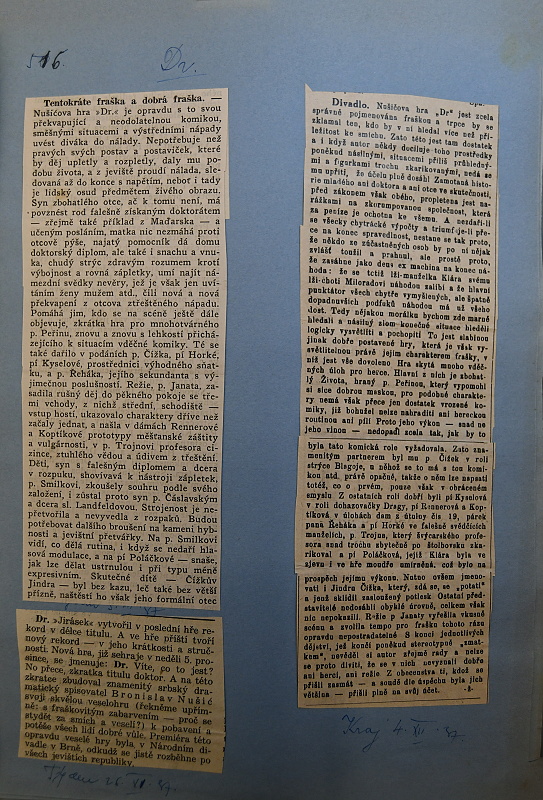 516.
Dr.
Tentokráte fraška a dobrá fraška. —
Nušičova hra »Dr.« je opravdu s to svou
překvapující a neodolatelnou komikou,
směšnými situacemi a výstředními nápady
uvést diváka do nálady. Nepotřebuje než
pravých svých postav a postaviček, které
by děj upletly a rozpletly, daly mu po-
dobu života, a z jeviště proudí nálada, sle-
dovaná až do konce s napětím, neboť i tady
je lidský osud předmětem živého obrazu.
Syn zbohatlého otce, ač k tomu není, má
povznést rod falešně získaným doktorátem
— zřejmě také příklad z Maďarska — a
učeným posláním, matka nic nezmáhá proti
otcově pýše, najatý pomocník dá domu
doktorský diplom, ale také i snachu a vnu-
ka, chudý strýc zdravým rozumem krotí
výbojnost a rovná zápletky, umí najít ná-
mezdní svědky nevěry, jež je však jen uví-
táním ženy mužem atd., čili nová a nová
překvapení z otcova ztřeštěného nápadu.
Pomáhá jim, kdo se na scéně ještě dále
objevuje, zkrátka hra pro mnohotvárného
p. Peřinu, znovu a znovu s lehkostí přichá-
zejícího k situacím vděčné komiky. Té se
také dařilo v podáních p. Čížka, pí Horké,
pí Kyselové, prostřednicí výhodného sňat-
ku, a p. Řeháka, jejího sekundanta s vý-
jimečnou poslušností. Režie, p. Janata, za-
sadila rušný děj do pěkného pokoje se tře-
mi vchody, z nichž střední, schodiště —
vstup hostí, ukazovalo charaktery dříve než
začaly jednat, a našla v dámách Rennerové
a Koptíkové prototypy měšťanské záštity
a vulgárnosti, v p. Trojanovi profesora ci-
zince, ztuhlého vědou a údivem z třeštění.
Děti, syn s falešným diplomem a dcera
v rozpuku, shovívavá k nástroji zápletek,
p. Smilkovi, zkoušely souhru podle svého
založení, i zůstal proto syn p. Čáslavským
a dcera sl. Landfeldovou. Strojenost je ne-
přetvořila a nevyvedla z rozpaků. Budou
potřebovat dalšího broušení na kameni hyb-
nosti a jevištní přetvářky. Na p. Smilkovi
vidí, co dělá rutina, i když se nedaří hla-
sová modulace, a na pí Poláčkové — snaže,
jak lze dělat ustrnulou i při typu méně
expresivním. Skutečné dítě — Čížkův
Jindra — byl bez kazu, leč také bez větší
přízně, naštěstí ho však jeho formální otec
Dr. »Jirásek« vytvořil v poslední hře re-
kord v délce titulu. A ve hře příští tvoří
nový rekord — v jeho krátkosti a struč-
nosti. Nová hra, již sehraje v neděli 5. pro-
since, se jmenuje: Dr. Víte, co to jest?
No přece, zkratka titulu doktor. A na této
zkratce zbudoval znamenitý srbský dra-
matický spisovatel Bronislav Nušić
svoji skvělou veselohru (řekněme upřím-
ně: s fraškovitým zabarvením — proč se
stydět za smích a veselí?) k pobavení a
potěše všech lidí dobré vůle. Premiéra této
opravdu veselé hry byla v Národním di-
vadle v Brně, odkudž se jistě rozběhne po
všech jevištích republiky.
Týden 26 XI. 37.
Divadlo. Nušičova hra „Dr" jest zcela
správně pojmenována fraškou a trpce by se
zklamal ten, kdo by v ní hledal více než pří-
ležitost ke smíchu. Zato této jest tam dostatek
a i když autor někdy dociluje toho prostředky
poněkud násilnými, situacemi příliš průhledný-
mi a figurkami trochu skarikovanými, nedá se
mu upříti, že účelu plně dosáhl. Zamotaná histo-
rie mladého ani doktora a ani otce ve skutečnosti,
před zákonem však obého, propletena jest na-
rážkami na skorumpovanou společnost, která
za peníze je ochotna ke všemu. A nezdaří-li
se všecky chytrácké výpočty a triumfuje-li pře-
ce na konec spravedlnost, nestane se tak proto,
že někdo ze zúčastněných osob by po ní nějak
zvlášť toužil a prahnul, ale prostě proto,
že zasáhne jako deus ex machina na konec ná-
hoda: že se tctiž lži-manželka Klára svému
lži-choti Miloradovi náhodou zalíbí a že hlavní
punktátor všech chytře vymyšlených, ale špatně
dopadnuvších podfuků náhodou má už všeho
dost. Tedy nějakou morálku bychom zde marně
hledali a násilný zlom konečné situace hleděli
logicky vysvětliti a pochopiti To jest slabinou
jinak dobře postavené hry, která je však vy-
světlitelna právě jejím charakterem frašky, v
níž jest vše dovoleno Hra skýtá mnoho vděč-
ných úloh pro herce. Hlavní z nich je zbohat-
lý Života, hraný p. Peřinou, který vypomohl
si sice dobrou maskou, pro podobné charakte-
ry nemá však přece jen dostatek vrozené ko-
miky, již bohužel nelze nahraditi ani hereckou
routinou ani pílí Proto jeho výkon — snad ne
jeho vinou — nedopadl zcela tak, jak by to
byla tato komická role vyžadovala. Zato zna-
menitým partnerem byl mu p Čížek v roli
strýce Blagoje, u něhož se to má s tou komi-
kou atd. právě opačně, takže o něm lze napsati
totéž, co o prvém, pouze však v obráceném
smyslu Z ostatních rolí dobří byli pí Kyselová
v roli dohazovačky Dragy, pí Rennerová a Kop-
tíková v úlohách dam z útulny čís 19, párek
pana Řeháka a pí Horké ve falešně svědčících
manželích, p. Trojan, který švýcarského profe-
sora snad trochu zbytečně po Štolbovsku zka-
rikoval a pí Poláčková, jejíž Klára byla ve
zjevu i ve hře moudře umírněná, což bylo na
prospěch jejímu výkonu. Nutno ovšem jmeno-
vati i Jindra Čížka, který, zdá se, se „potatil"
a jenž sklidil zasloužený potlesk. Ostatní před-
stavitelé nedosáhli obvyklé úrovně, celkem však
nic nepokazili. Režie p Janaty vyřešila vkusně
scénu a zvolila tempo pro frašku tohoto rázu
opravdu nepostradatelné S konci jednotlivých
dějství, jež končí poněkud stereotypně „zmat-
kem", nevěděl si autor zřejmě rady a nelze
se proto diviti, že se v nich nevyznali dobře
ani herci, ani režie. Z obecenstva ti, kdož se
přišli zasmát — a soudě dle úspěchu byla jich
většina — přišli plně na svůj účet. -š-
Kraj 4. XII. 37.